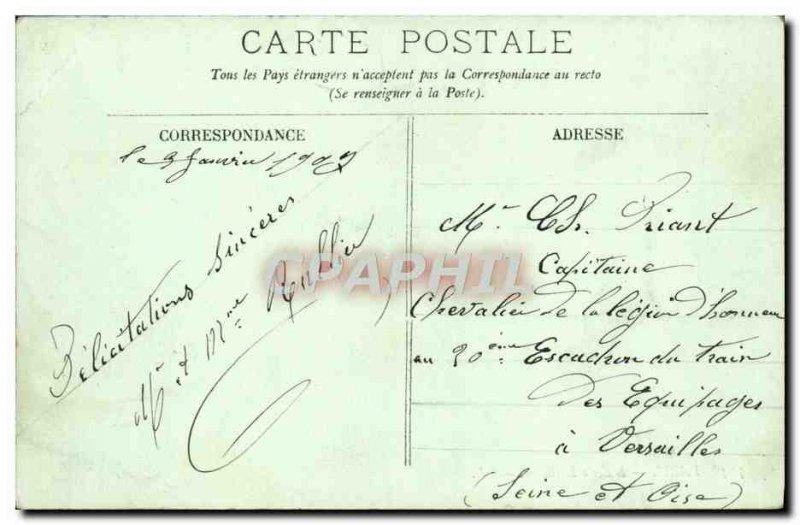 CARTE POSTALE
Tous les Pays étrangers n'acceptent pas la Correspondance au recto
(Se renseigner à la Poste).
CORRESPONDANCE
le 3 Janvier 1909
Félicitations Sincères
Mr et Mme
ADRESSE
Mr Ch. Briant
Capitaine
Chevalier de la légion d'honneur
au 20ème Escadron du train
des Equipages
à Versailles
(Seine et Oise)
CPAPHIL